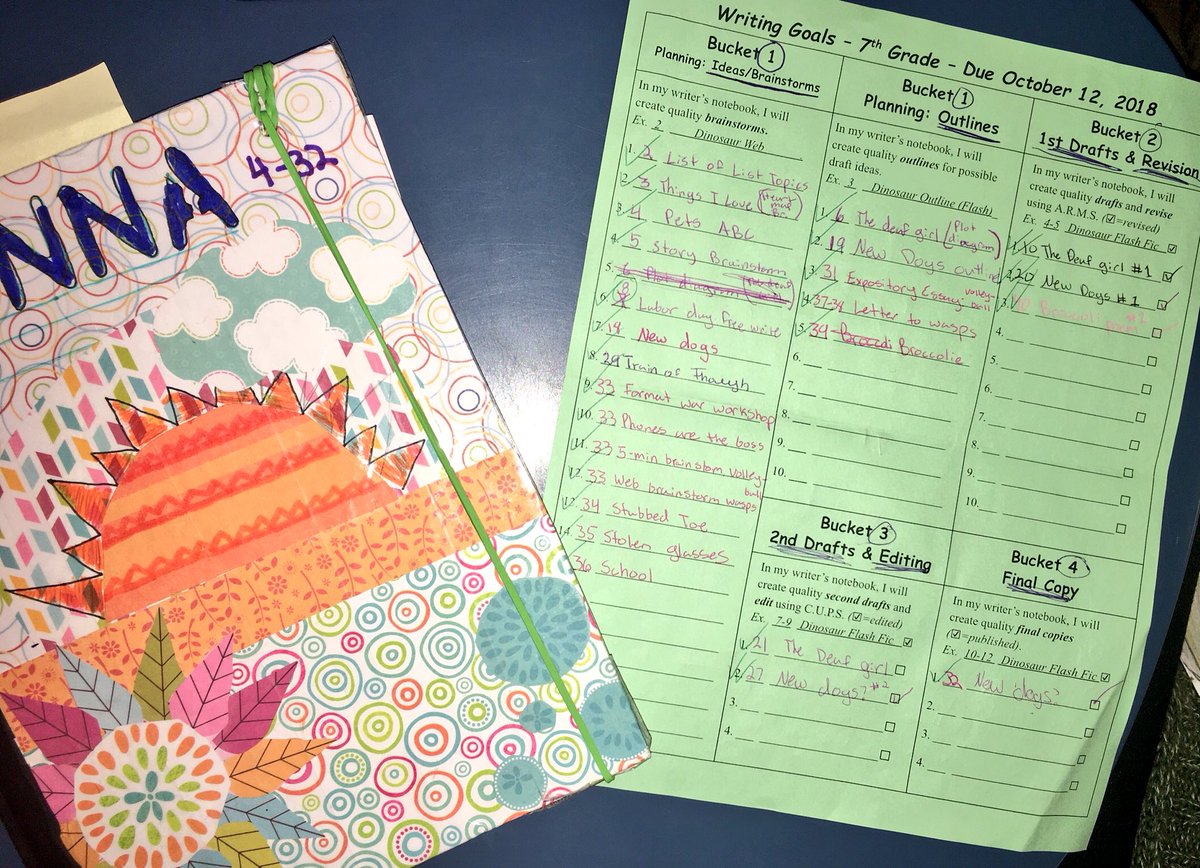 NNA
4-32
Writing Goals - 7th Grade - Due October 12, 2018
Bucket 1
Planning: Ideas/Brainstorms
In my writer's notebook, I will
create quality brainstorms.
Ex. 2 Dinosaur Web
1. 2 List of List Topics
2. 3 Things I Love (Heart map
3. 4 Pets ABC
4. 5 Story Brainstorm
5. 6 Plot diagram
6. 8 Labor day free write
7. 18 New dogs
8. 29 Train of Though
9. 33 Format war workshop
10. 33 Phones are the boss
11. 33 5-min brainstom Volley-
ball
12. 33 Web brainstorm wasps
13. 34 Stubbed Toe
14. 35 Stolen glasses
36 School
Bucket 1
Planning: Outlines
In my writer's notebook, I will
create quality outlines for possible
draft ideas.
Ex. 3 Dinosaur Outline (Flash)
1. 6 The deaf girl (Plot
diagram)
2. 19 New Dogs outline
3. 31 Expository Essay: volley-
ball
4. 37-38 Letter to wasps
5. 39 Broccoli Broccolie
6.
7.
8.
9.
10.
Bucket 2
1st Drafts & Revision
In my writer's notebook, I will
create quality drafts and revise
using A.R.M.S. (☑=revised)
Ex. 4-5 Dinosaur Flash Fic ☑
1. 10 The Deaf girl #1 ☑
2. 20 New Dogs #1 ☑
3. 40 Broccoli #2
4.
5.
6.
7.
8.
9.
10.
Bucket 3
2nd Drafts & Editing
In my writer's notebook, I will
create quality second drafts and
edit using C.U.P.S. (☑=edited)
Ex. 7-9 Dinosaur Flash Fic ☑
1. 21 The Deaf girl
2. 27 New dogs? #2
3.
4.
Bucket 4
Final Copy
In my writer's notebook, I will
create quality final copies
(☑=published).
Ex. 10-12 Dinosaur Flash Fic ☑
1. 32 New dogs?
2.
3.
4.